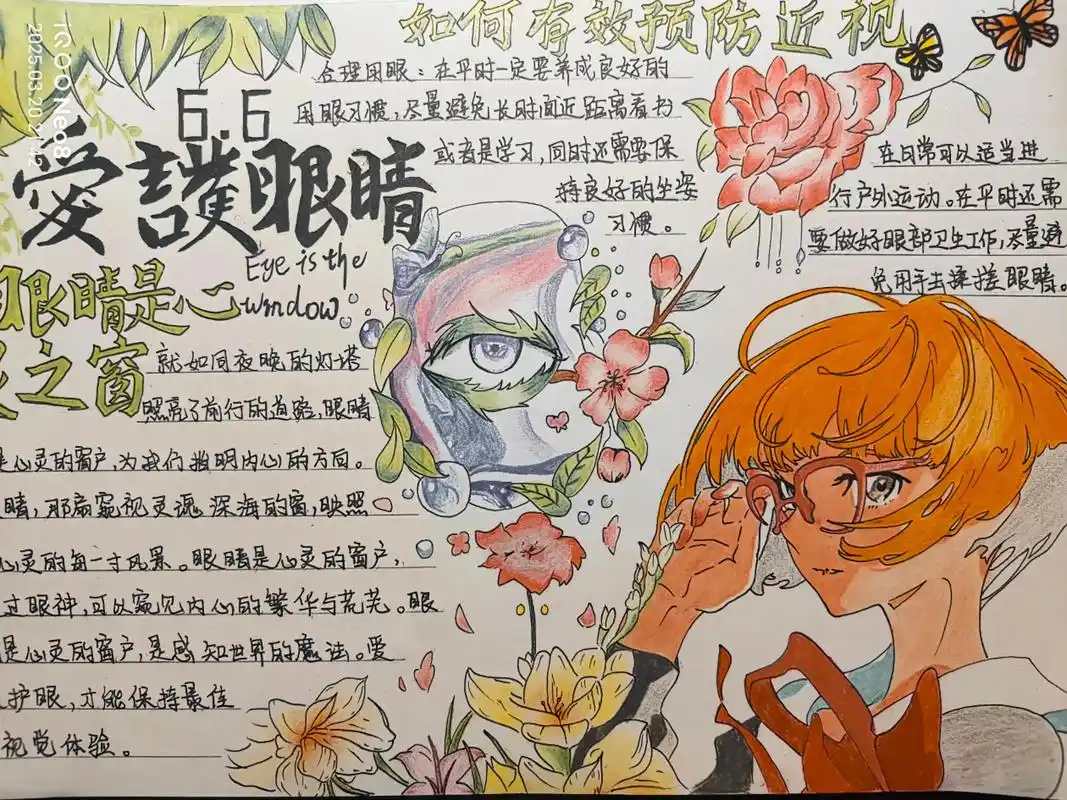 iQOO Neo8
2025.03.20 21:42
如何有效预防近视
6.6
愛護眼睛
Eye is the
window
合理用眼：在平时一定要养成良好的
用眼习惯，尽量避免长时间近距离看书
或者是学习，同时还需要保
持良好的坐姿
习惯。
在日常可以适当进
行户外运动。在平时还需
要做好眼部卫生工作，尽量避
免用手去揉搓眼睛。
眼睛是心
之窗
就如同夜晚的灯塔
照亮了前行的道路，眼睛
是心灵的窗户，为我们指明内心的方向。
睛，那扇窥视灵魂深海的窗，映照
心灵的每一寸风景。眼睛是心灵的窗户，
过眼神，可以窥见内心的繁华与荒芜。眼
是心灵的窗户，是感知世界的魔法。爱
护眼，才能保持最佳
视觉体验。